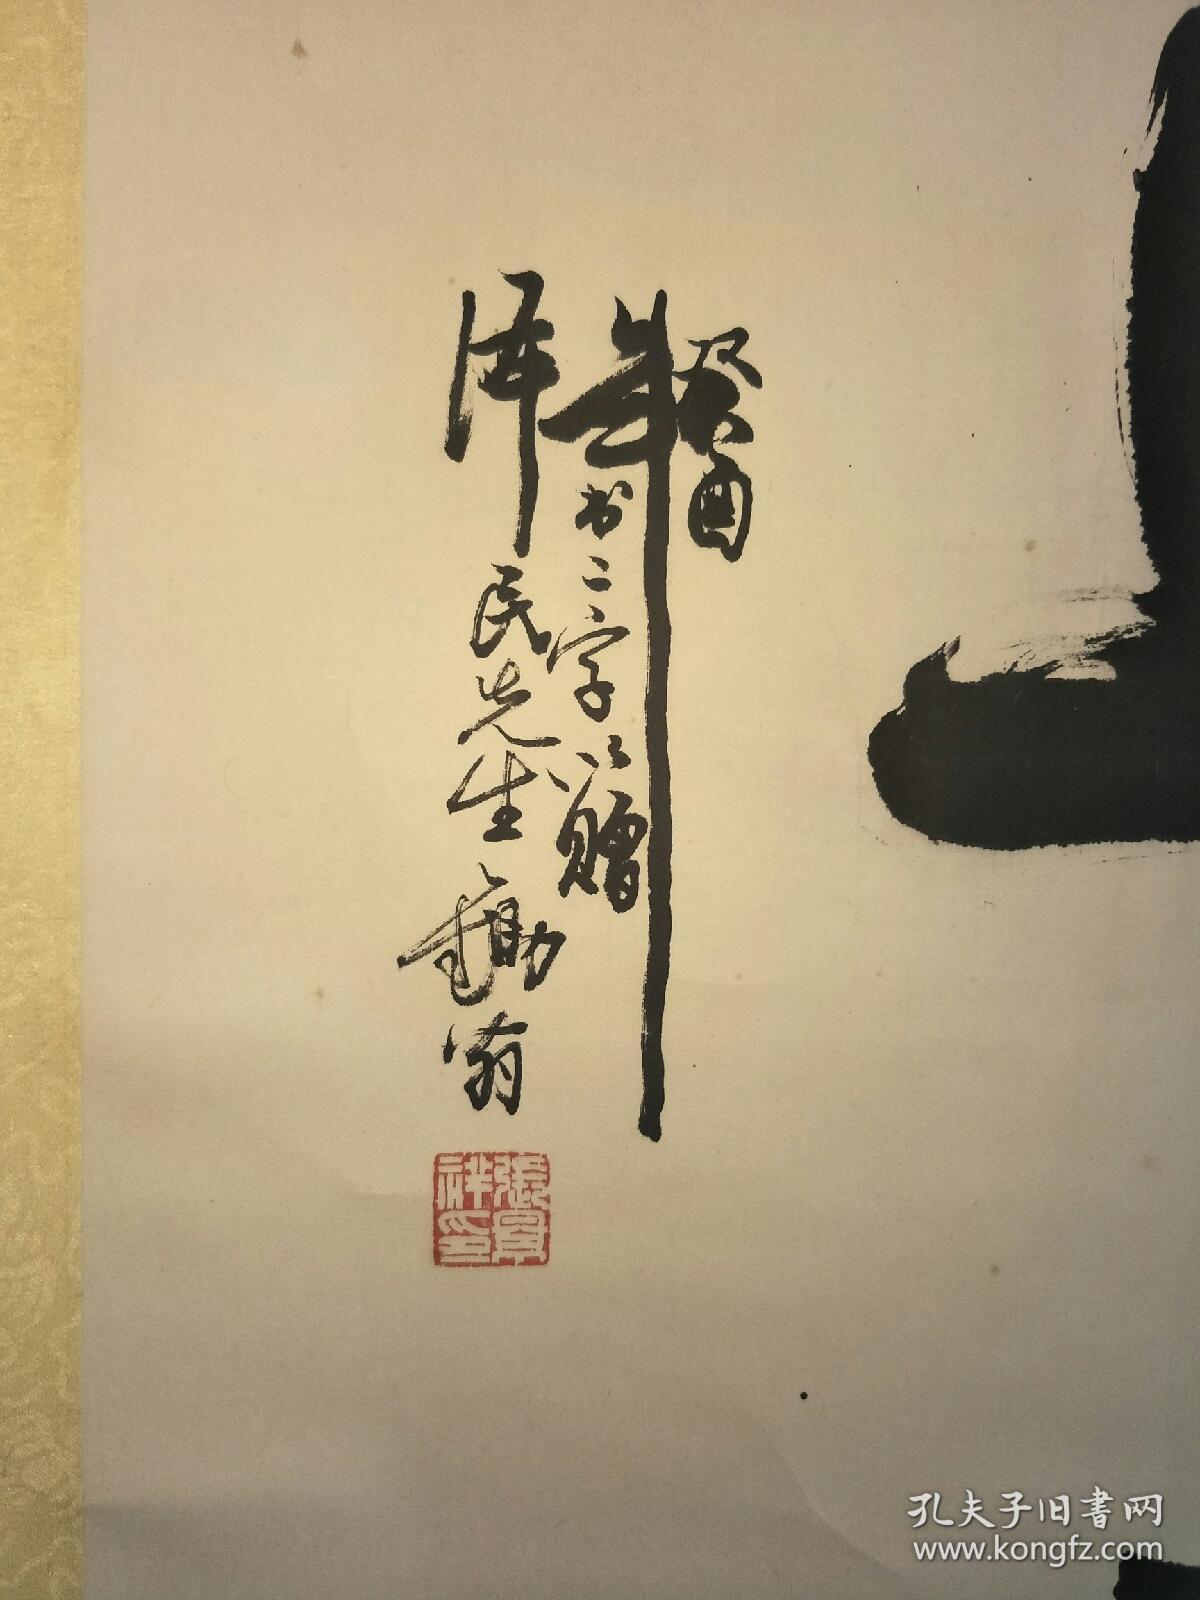 癸酉
年书二字以赠
泽民先生勋翁
張景祥印
孔夫子旧書网
www.kongfz.com